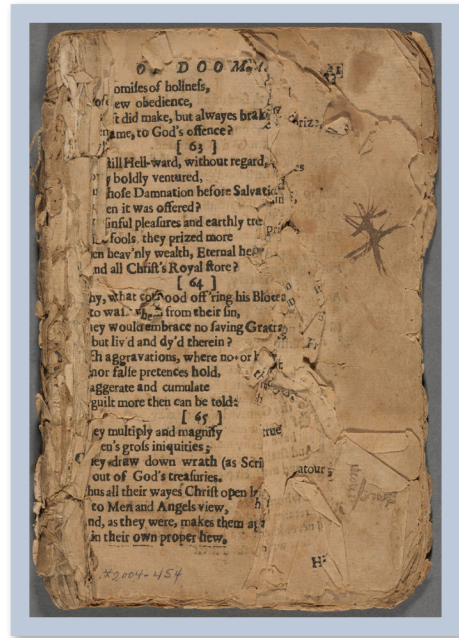 OF DOOM.
omises of holiness,
of ew obedience,
t did make, but alwayes brak
ame, to God's offence?
[ 63 ]
ill Hell-ward, without regard,
boldly ventured,
hose Damnation before Salvatio
en it was offered?
inful pleasures and earthly tre
fools, they prized more
en heav'nly wealth, Eternal he
nd all Christ's Royal store?
[ 64 ]
hy, what stood off'ring his Bloud
to wa from their sin,
ey would embrace no saving Grace
but liv'd and dy'd therein?
ch aggravations, where no
nor false pretences hold,
aggerate and cumulate
guilt more then can be told:
[ 65 ]
ey multiply and magnify
en's gross iniquities;
ey draw down wrath (as Scri
out of God's treasuries.
hus all their wayes Christ open l
to Men and Angels view,
nd, as they were, makes them ap
in their own proper hew.
*2004-454